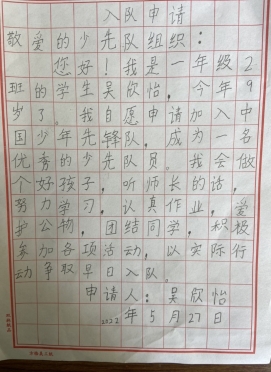 入队申请
敬爱的少先队组织：
您好！我是一年级2
班的学生吴欣怡，今年9
岁了。我自愿申请加入中
国少年先锋队，成为一名
优秀的少先队员。我会做
个好孩子，听师长的话，
努力学习，认真作业，爱
护公物，团结同学，积极
参加各项活动，以实际行
动争取早日入队。
申请人：吴欣怡
2022年5月27日